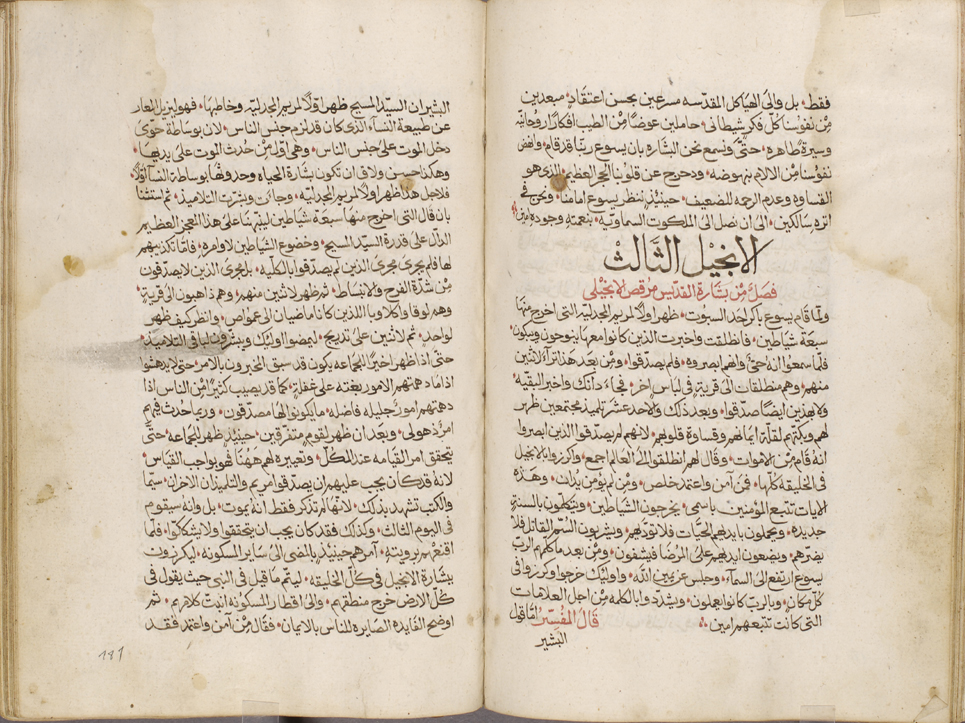 فقط، بل والى الهياكل المقدسه مسرعين بحسن اعتقاد، مبعدين
من نفوسنا كل فكر شيطانى، حاملين عوضًا من الطيب افكارًا روحانيه
وسيرة طاهره، حتى ونسمع نحن البشاره بان يسوع ربنا قد قام، وانهض
نفوسنا من الالام بنهوضه، ودحرج عن قلوبنا الحجر العظيم، الذى هو
القساوه وعدم الرحمه للضعيف، حينيذ ننظر يسوع امامنا، ونحن فى
اثره سالكين، الى ان نصل الى الملكوت السماويه، بنعمته وجوده امين
الانجيل الثالث
فصل من بشارة القديس مرقص الانجيلى
ولما قام يسوع باكر احد السبوت، ظهر اولًا لمريم المجدليه التى اخرج منها
سبعة شياطين، فانطلقت واخبرت الذين كانوا معها ينوحون ويبكون
فلما سمعوا انه حى وانهم ابصروه، فلم يصدقوا، ومن بعد هذا تراآ لاثنين
منهم، وهم منطلقات الى قرية فى لباس اخر، فجاء ذانك واخبر البقيه،
ولا بهذين ايضًا صدقوا، وبعد ذلك والاحد عشر تلميذ مجتمعين ظهر
لهم وبكتهم لقلة ايمانهم وقساوة قلوبهم، لانهم لم يصدقوا الذين ابصروا
انه قام من الاموات، وقال لهم انطلقوا الى العالم اجمع، واكرزوا بالانجيل
فى الخليقه كلها، فمن آمن واعتمد خلص، ومن لم يومن يدان، وهذه
الايات تتبع المؤمنين باسمى، يخرجون الشياطين، ويتكلمون بالسنة
جديده، ويحملون بايديهم الحيات فلا تؤذيهم، ويشربون السم القاتل فلا
يضرهم، ويضعون ايديهم على المرضا فيشفون، ومن بعد ما كلمهم الرب
يسوع ارتفع الى السمآء، وجلس عن يمين الله، واوليك خرجوا وكرزوا فى
كل مكان، وبالرب كانوا يعملون، ويشددوا بالكلمه من اجل العلامات
التى كانت تتبعهم امين، قال المفسر اما قول
البشير
البشير ان السيد المسيح ظهر اولًا لمريم المجدليه وخاطبها، فهو ليزيل العار
عن طبيعة النسآء الذى كان قد لزم جنس الناس، لان بوساطة حوى
دخل الموت على جنس الناس، وهى اول من حدث الموت على يديها،
وهكذا حسن ولاق ان تكون بشارة الحياه وحدوثها بوساطة النسآ اولًا،
فلاجل هذا ظهر اولًا لمريم المجدليه، وجائت وبشرت التلاميذ، ثم استثنا
بان قال التى اخرج منها سبعة شياطين لينبهنا على هذا المعجز العظيم
الدال على قدرة السيد المسيح، وخضوع الشياطين لاوامره، فاما تكذيبهم
لها فلم يجرى مجرى الذين لم يصدقوا بالكليه، بل مجرى الذين لا يصدقون
من شدة الفرح والانبساط، ثم ظهر لاثنين منهم، وهم ذاهبون الى قرية،
وهم لوقا واكلاوبا اللذين كانا ماضيان الى عمواص، وانظر كيف ظهر
لواحد، ثم لاثنين على تدريج، ليمضوا اوليك ويبشرون لباقى التلاميذ،
حتى اذا ظهر اخيرًا للجماعه يكون قد سبق المخبرون بالامر، حتى لا يدهشوا
اذا ما دهمتهم الامور بغته على غفلة، كما قد يصيب كثيرًا من الناس اذا
دهتهم امور جليله فاضله، ما يكونوا لها مصدقون، وربما حدث فيهم
امر ذهولى، وبعد ان ظهر لقوم متفرقين، حينيذ ظهر للجماعه، حتى
يتحقق امر القيامه عند الكل، وتعييره لهم ههنا فهو بواجب القياس،
لانه قد كان يجب عليهم ان يصدقوا مريم والتلميذان الاخران، سيما
والكتب تشهد بذلك، لانها لم تذكر فقط انه يموت، بل وانه سيقوم
فى اليوم الثالث، وكذلك فقد كان يجب ان يتحققوا ولا يشككوا، فلما
اقنعهم برويته، امرهم حينيذ بالمضى الى ساير المسكونه، ليكرزون
ببشارة الانجيل فى كل الخليقه، ليتم ما قيل فى النبى حيث يقول فى
كل الارض خرج منطقهم، والى اقطار المسكونه انبث كلامهم، ثم
اوضح الفايده الصايره للناس بالايمان، فقال من آمن واعتمد فقد
181